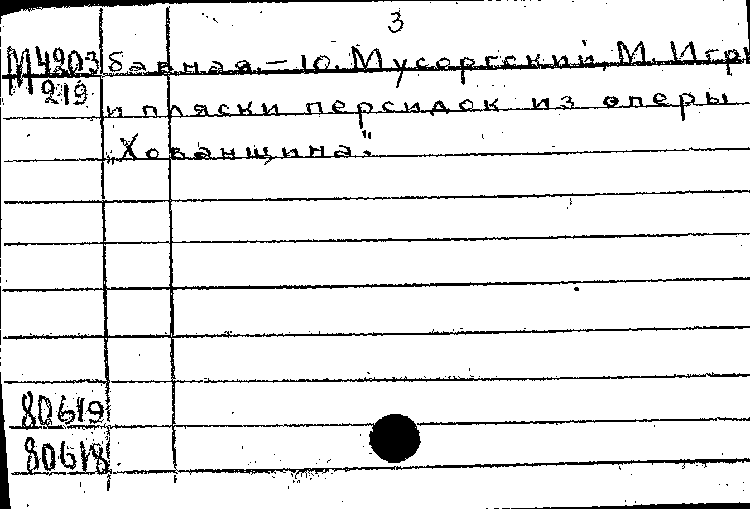 3
М4203 бавная. - 10. Мусоргский, М. Игры
М219
и пляски персидок из оперы
„Хованщина".
80619
80618